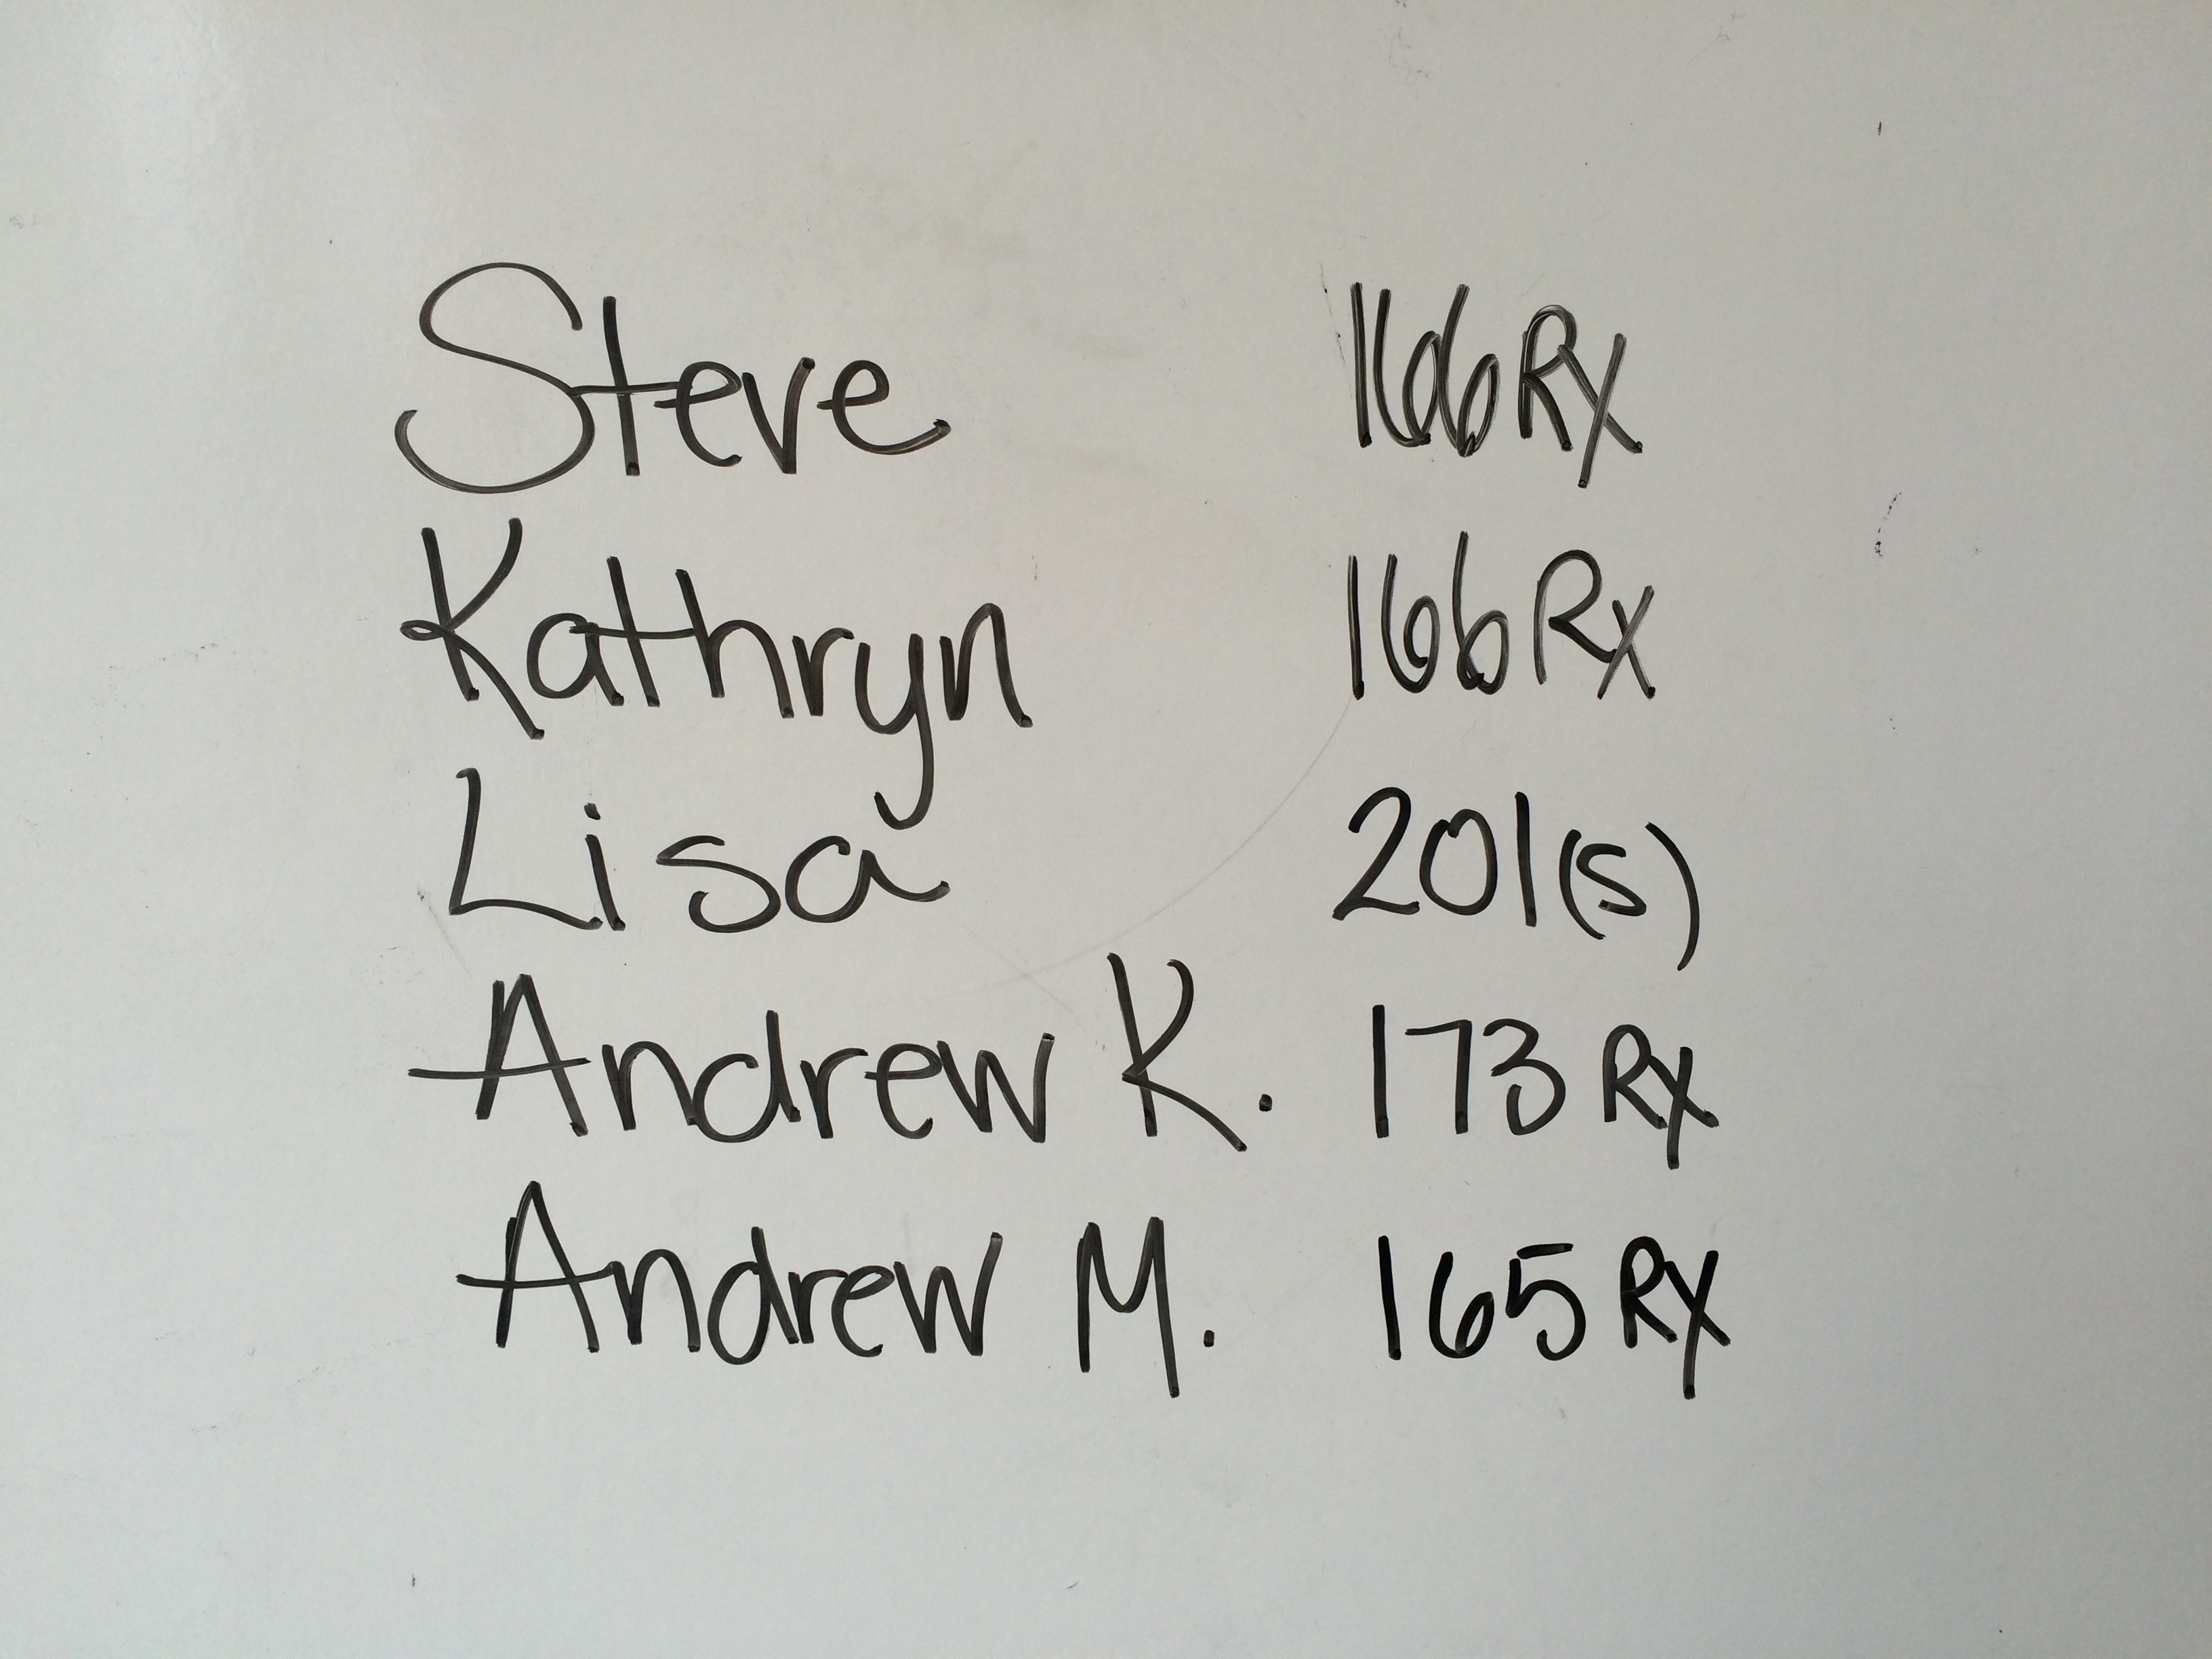 Steve 166 Rx
Kathryn 166 Rx
Lisa 201(s)
Andrew K. 173 Rx
Andrew M. 165 Rx